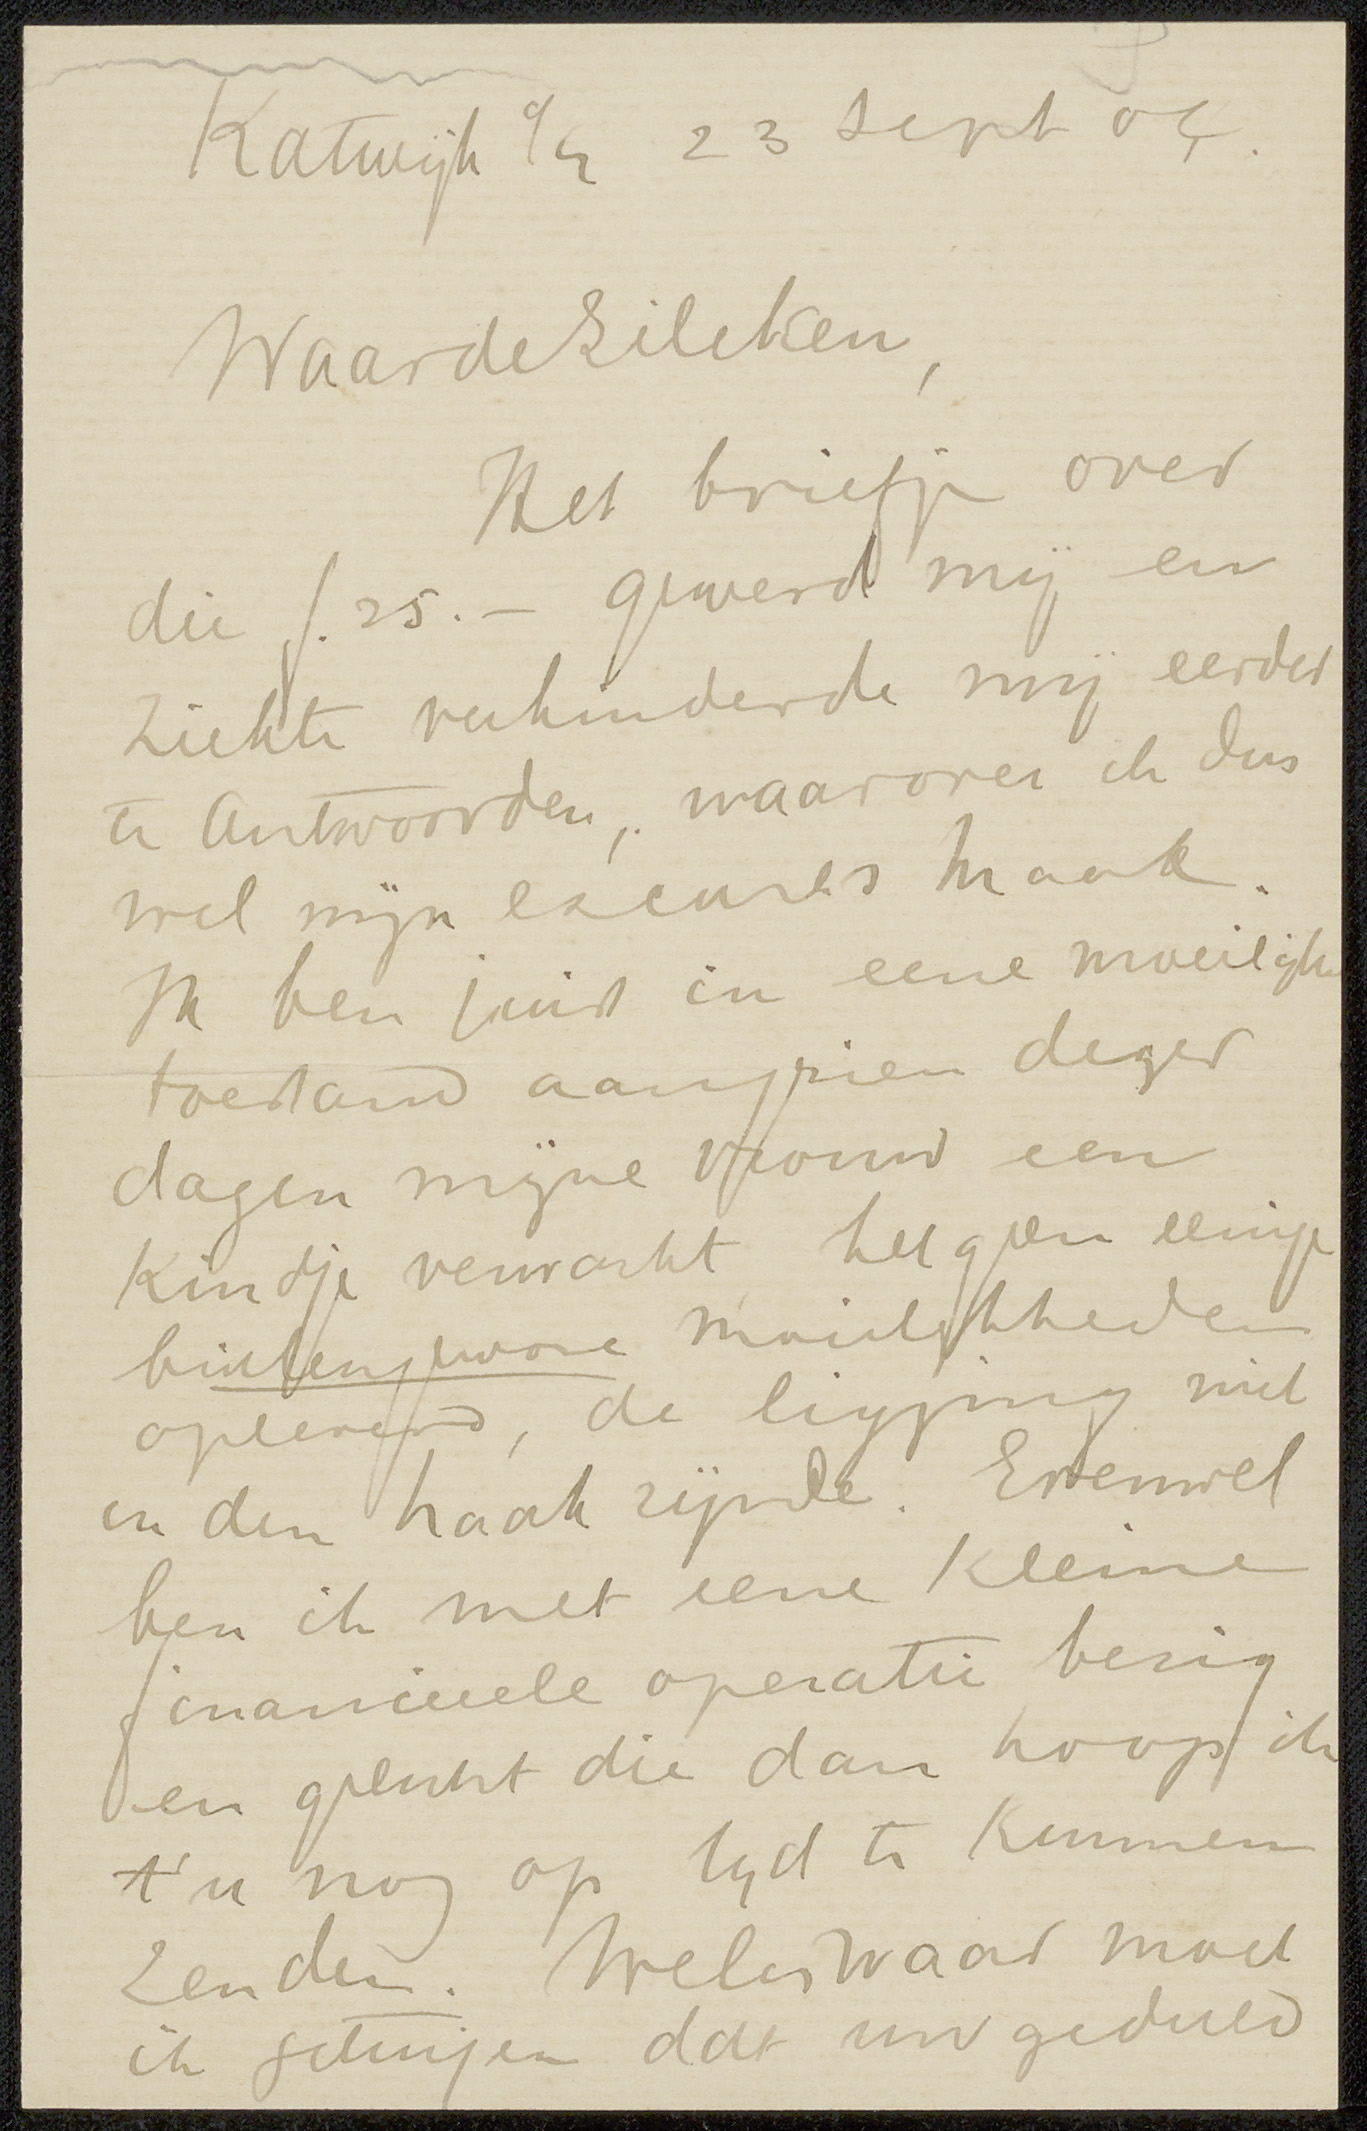 Katwijk a/z 23 sept 04.
Waarde Zilcken,
Het briefje over
die f. 25.— gewerd mij en
ziekte verhinderde mij eerder
te antwoorden, waarover ik dus
wel mijn excuses maak.
Ik ben juist in eene moeilijke
toestand aangezien dezer
dagen mijne vrouw een
kindje verwacht hetgeen eenige
buitengewone moeielijkheden
opleverd, de ligging niet
in den haak zijnde. Evenwel
ben ik met eene kleine
financieele operatie bezig
en gelukt die dan hoop ik
t'u nog op tijd te kunnen
zenden. Weliswaar moet
ik getuigen dat uw geduld